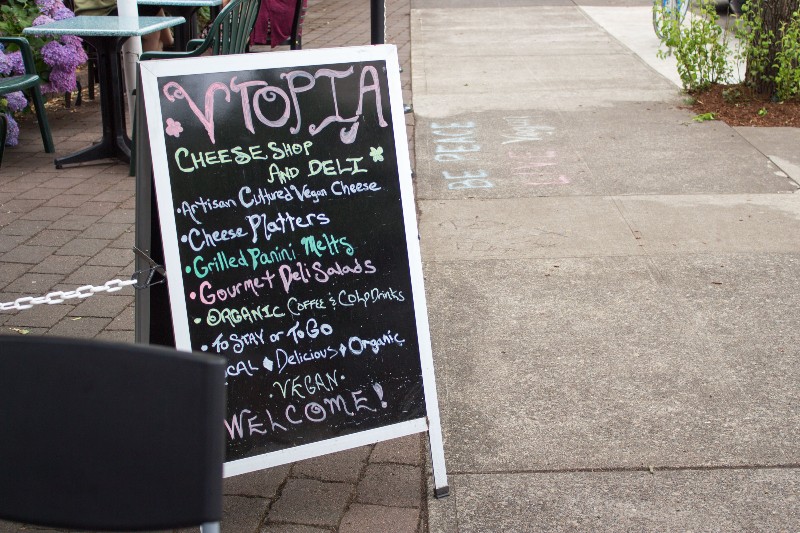 VTOPIA
CHEESE SHOP
AND DELI
• Artisan Cultured Vegan Cheese
• Cheese Platters
• Grilled Panini Melts
• Gourmet Deli Salads
• ORGANIC COFFEE & COLD DRINKS
• TO STAY or TO GO
CAL ♦ Delicious ♦ Organic
• VEGAN •
WELCOME!
BE PEACE
BE